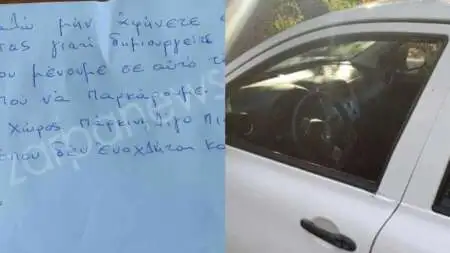 αλώ μήν ἀφήνετε
τας γιατί δημιουργείτε
ου μένουμε σε αὐτό τ
που νά παρκάρουμε.
χῶρος πάρκινγκ λίγο πι
που δέν ἐνοχλῆται κα
zarpanews